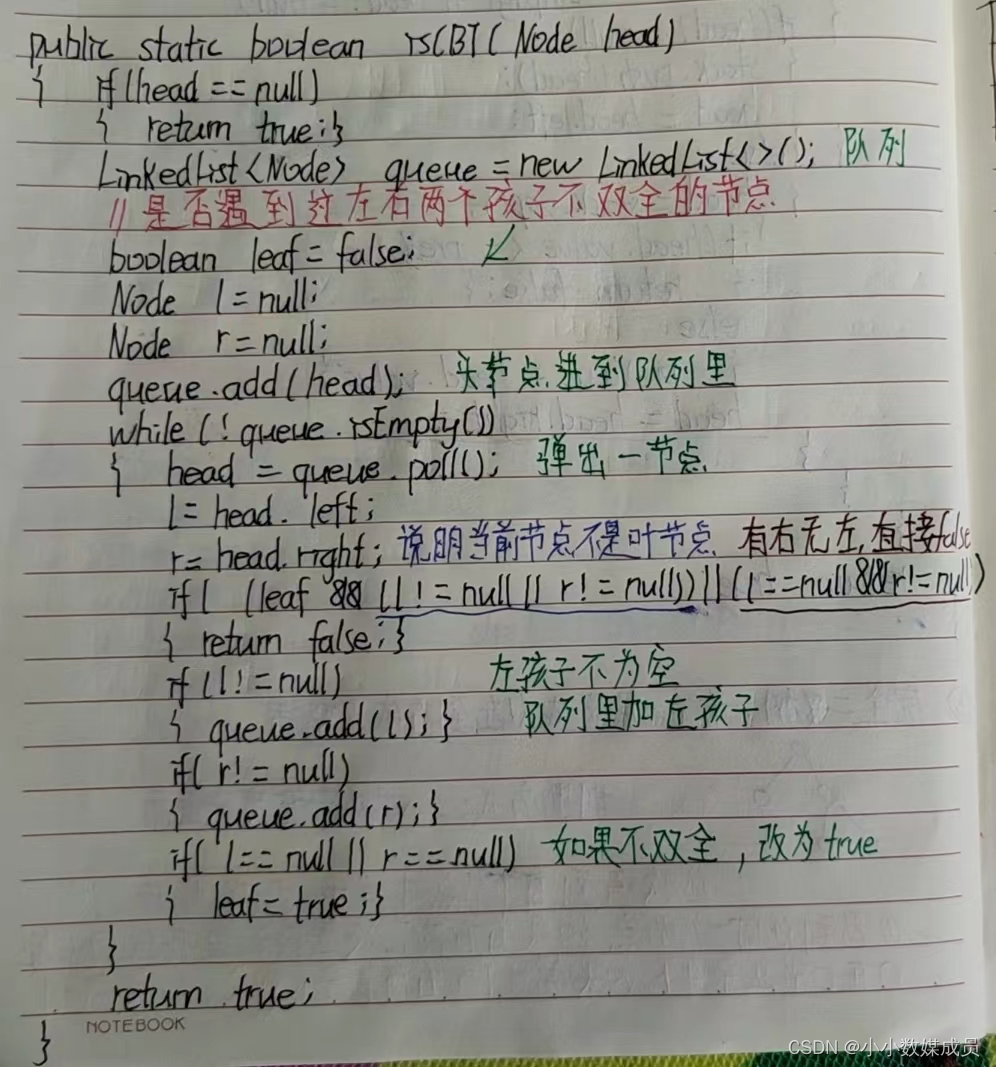 public static boolean isCBT(Node head)
{ if(head == null)
{ return true;}
LinkedList<Node> queue = new LinkedList<>(); 队列
//是否遇到过左右两个孩子不双全的节点
boolean leaf = false; ↙
Node l = null;
Node r = null;
queue.add(head); 头节点进到队列里
while (! queue.isEmpty())
{ head = queue.poll(); 弹出一节点
l = head. left;
r = head.right; 说明当前节点不是叶节点 有右无左,直接false
if( (leaf && (l != null || r != null)) || (l == null && r != null)
{ return false;}
if (l != null) 左孩子不为空
{ queue.add(l);} 队列里加左孩子
if( r != null)
{ queue.add(r);}
if( l == null || r == null) 如果不双全,改为true
{ leaf = true;}
}
return true;
NOTEBOOK
}
CSDN @小小数媒成员